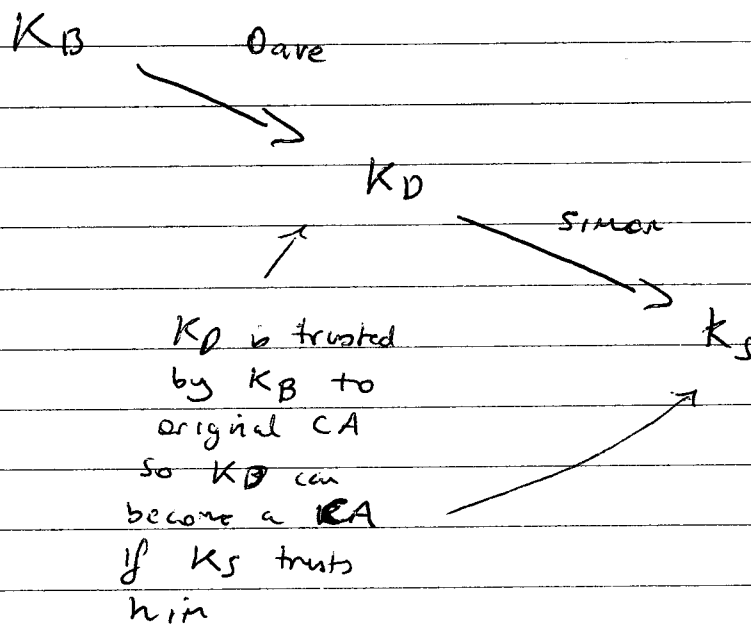 K_B Dave
K_D
Simon
K_S
K_D is trusted
by K_B to
original CA
so K_D can
become a CA
if K_S trusts
him